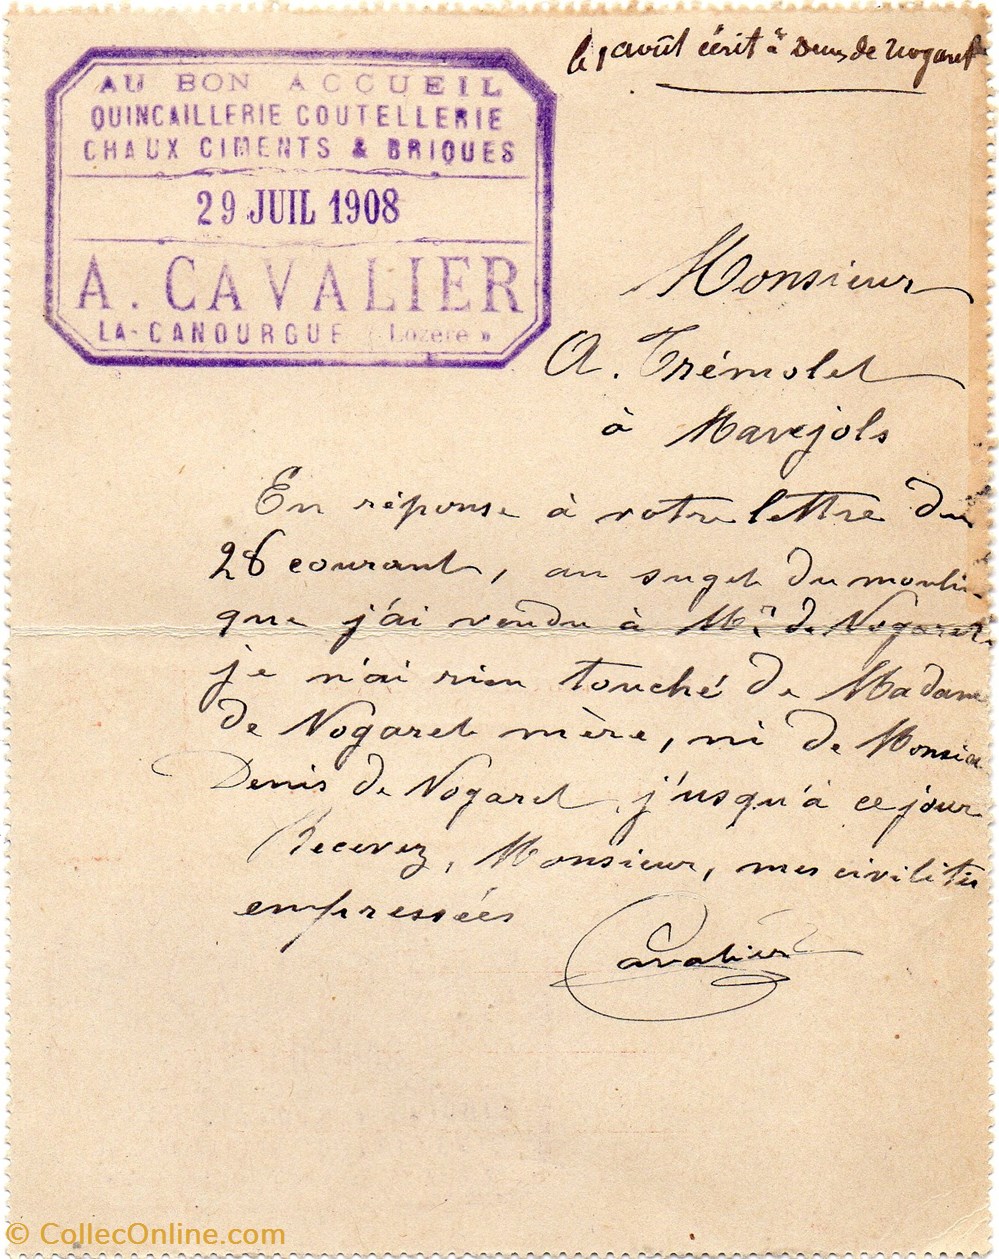 le 1 août écrit à Denis de Nogaret
AU BON ACCUEIL
QUINCAILLERIE COUTELLERIE
CHAUX CIMENTS & BRIQUES
29 JUIL 1908
A. CAVALIER
LA-CANOURGUE (Lozère »
Monsieur
A. Trémolet
à Marejols
En réponse à votre lettre du
28 courant, au suget du moulin
que j'ai vendu à Mr de Nogaret
je n'ai rien touché de Madame
de Nogaret mère, ni de Monsieur
Denis de Nogaret j'usqu'à ce jour
Recevez, Monsieur, mes civilités
empressées
Cavalier
© CollecOnline.com